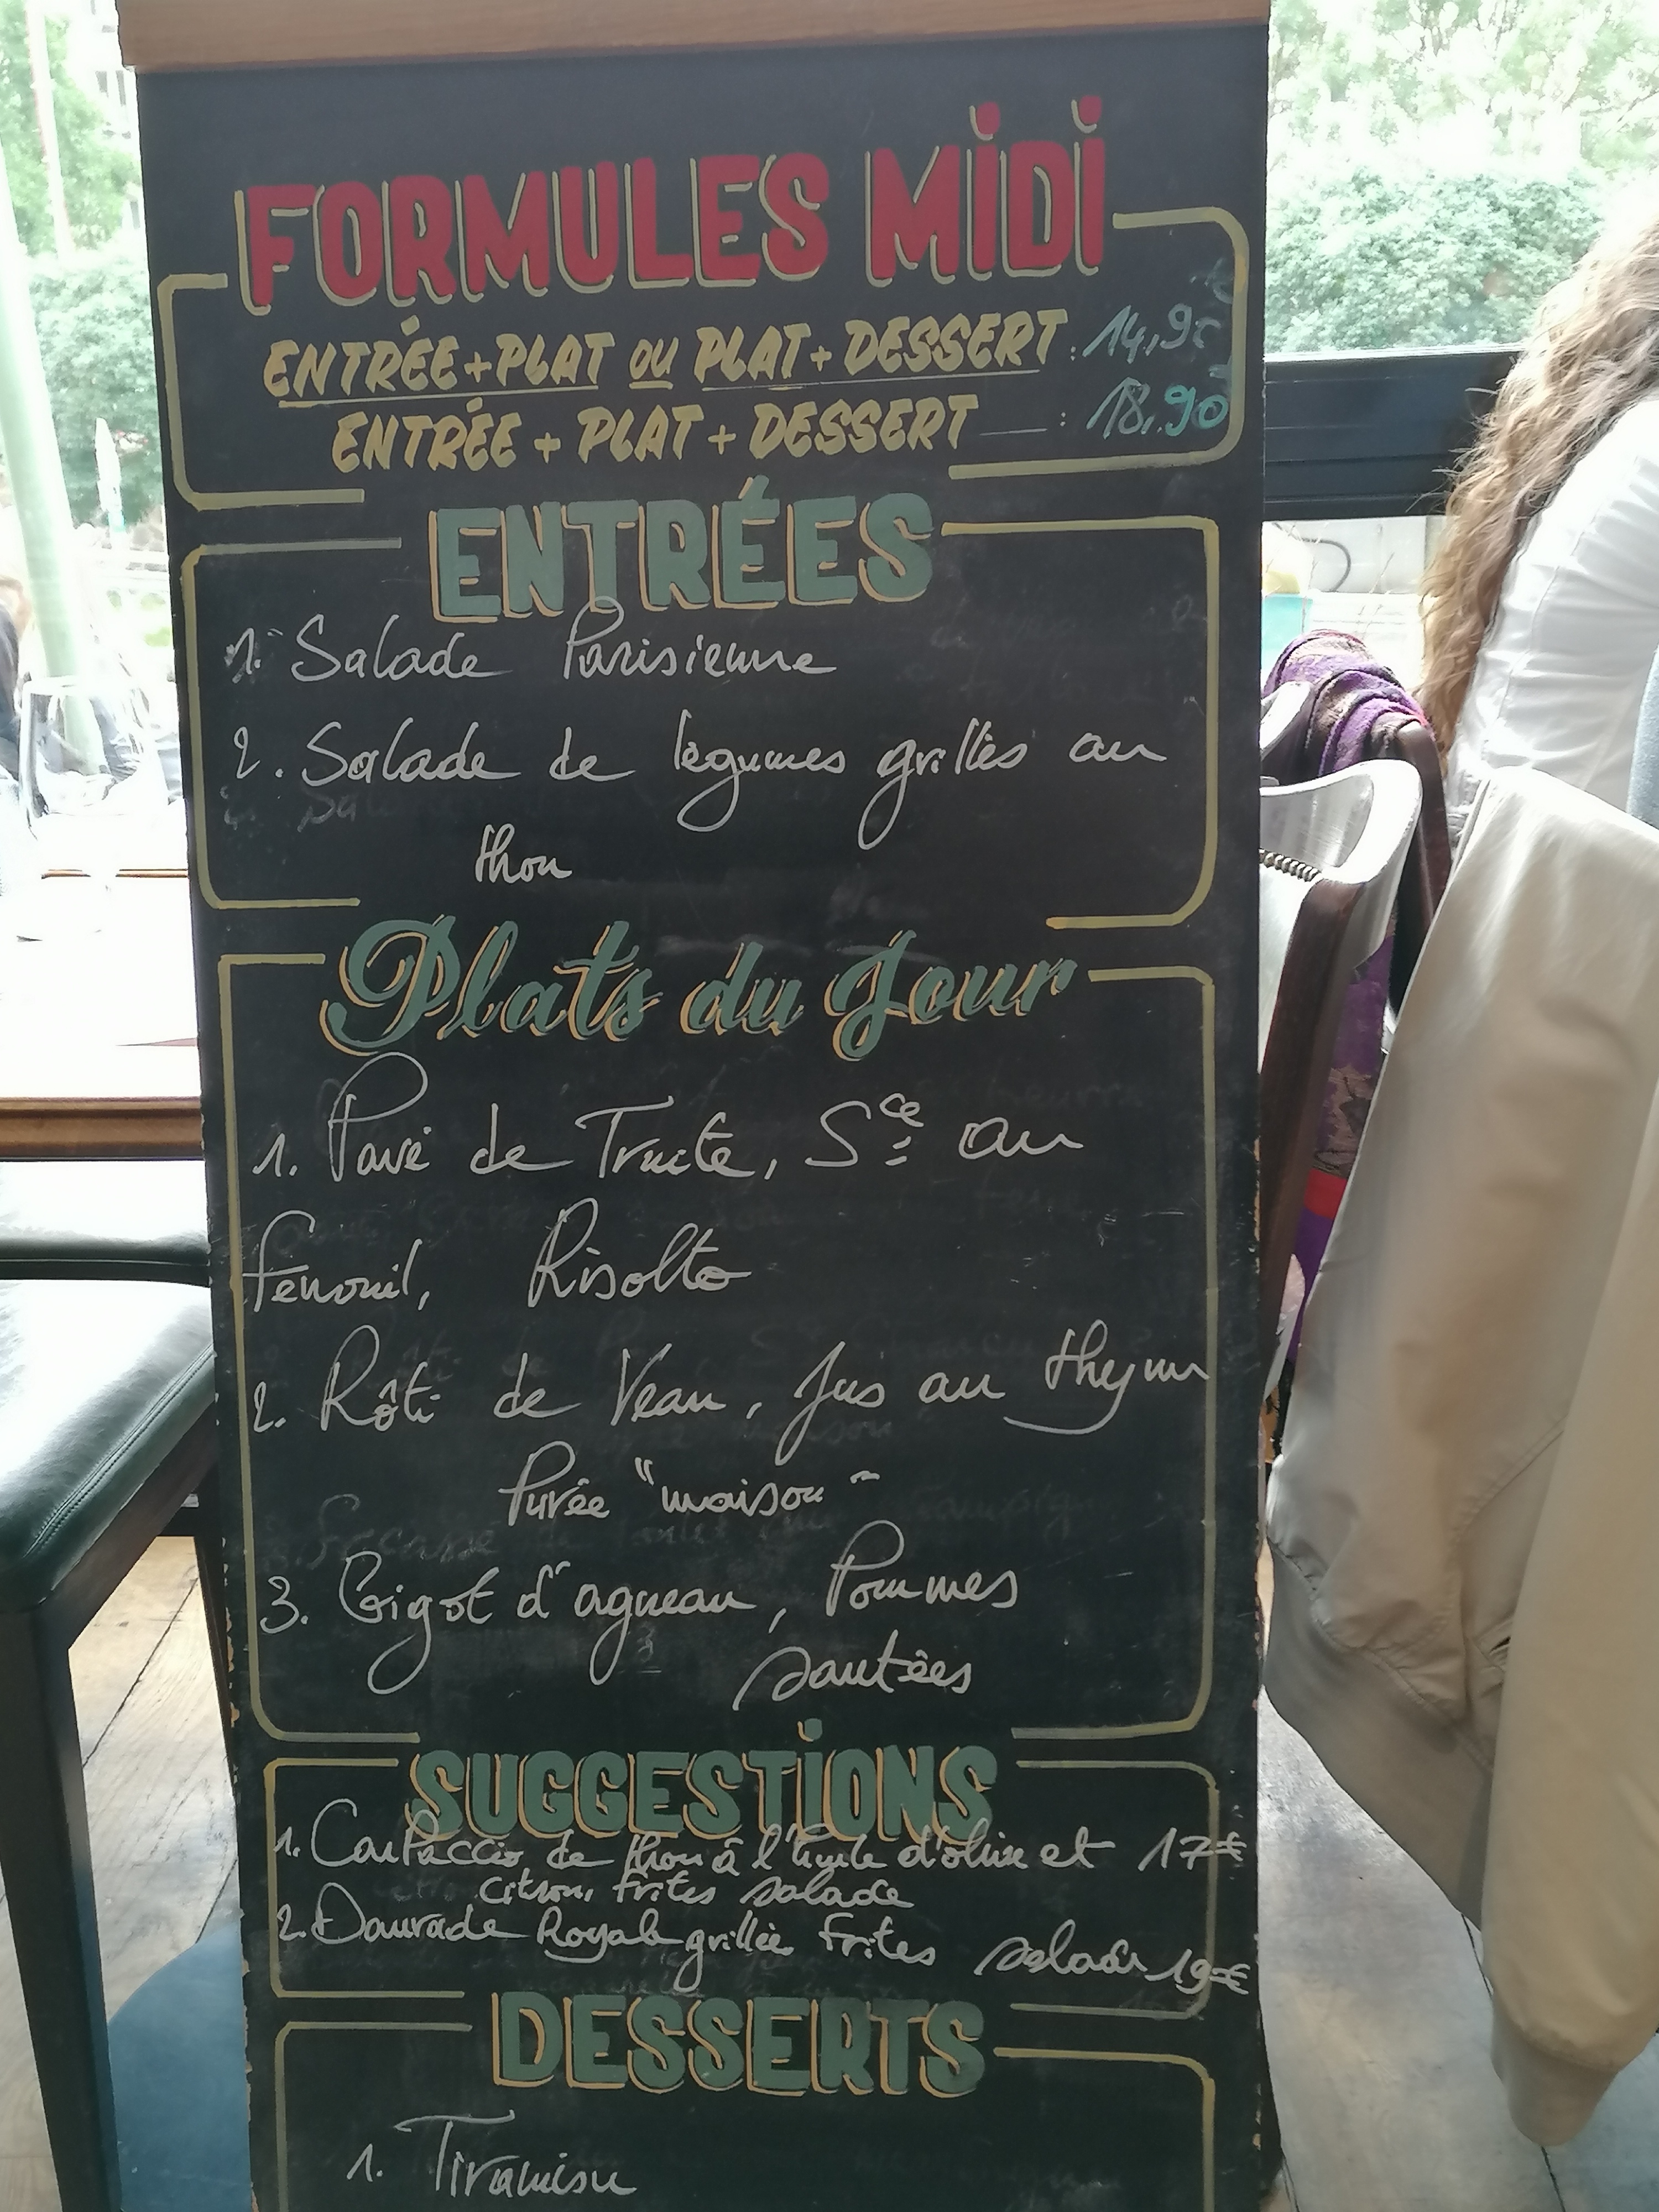 FORMULES MIDI
ENTRÉE + PLAT OU PLAT + DESSERT : 14,90
ENTRÉE + PLAT + DESSERT : 18,90
ENTRÉES
1. Salade Parisienne
2. Salade de légumes grillés au
thon
Plats du Jour
1. Pavé de Truite, Sce au
fenouil, Risotto
2. Rôti de Veau, Jus au thym
Purée "maison"
3. Gigot d'agneau, Pommes
sautées
SUGGESTIONS
1. Carpaccio de thon à l'huile d'olive et 17€
citron, frites salade
2. Daurade Royale grillée frites salade 19€
DESSERTS
1. Tiramisu